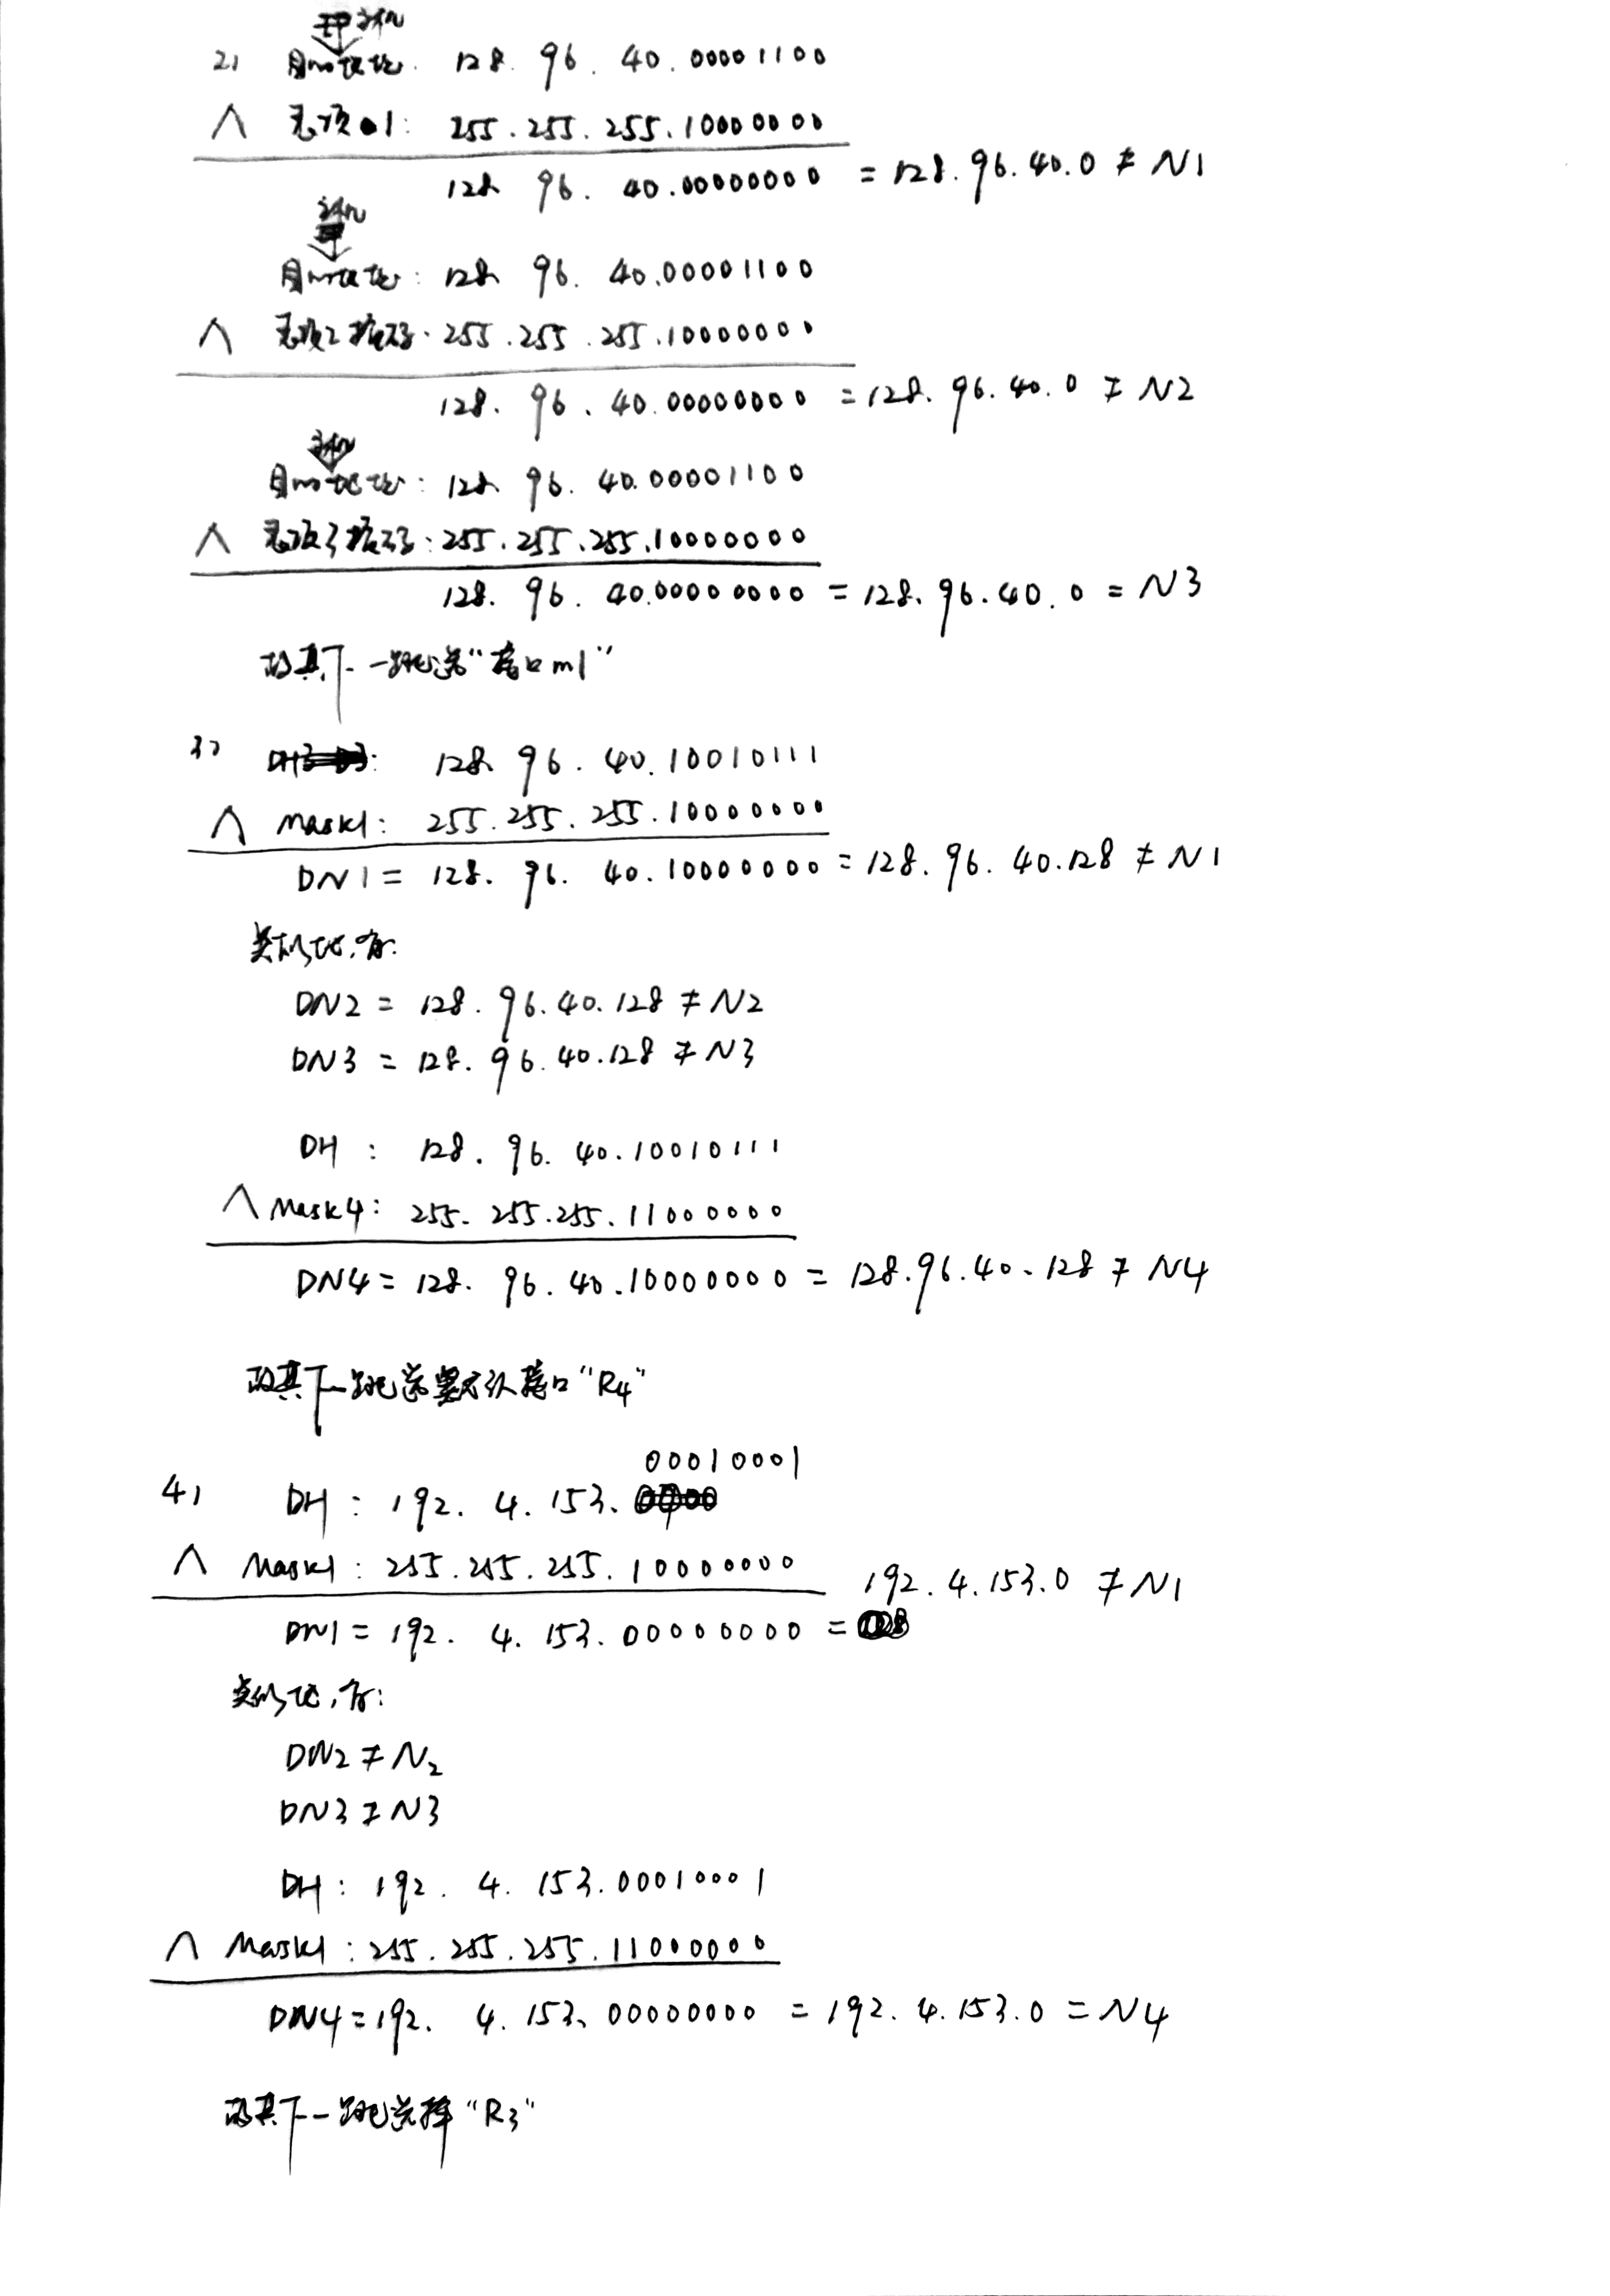 2) 目的地址: 128. 96. 40. 00001100
∧ 表项1: 255.255.255.10000000
128 96. 40.00000000 = 128.96.40.0 ≠ N1
目的地址: 128 96. 40.00001100
∧ 表项2掩码: 255.255.255.10000000
128. 96. 40.00000000 = 128.96.40.0 ≠ N2
目的地址: 128 96. 40.00001100
∧ 表项3掩码: 255.255.255.10000000
128. 96. 40.00000000 = 128.96.40.0 = N3
故其下一跳选"接口m1"
3) 128 96. 40.10010111
∧ Mask1: 255.255.255.10000000
DN1 = 128. 96. 40.10000000 = 128.96.40.128 ≠ N1
类似地,有:
DN2 = 128.96.40.128 ≠ N2
DN3 = 128.96.40.128 ≠ N3
DH : 128. 96. 40.10010111
∧ Mask4: 255.255.255.11000000
DN4 = 128. 96. 40.10000000 = 128.96.40.128 ≠ N4
故其下一跳选默认接口"R4"
00010001
4) DH : 192. 4. 153.
∧ Mask1: 255.255.255.10000000
192.4.153.0 ≠ N1
DN1 = 192. 4. 153.00000000 =
类似地,有:
DN2 ≠ N2
DN3 ≠ N3
DH : 192. 4. 153.00010001
∧ Mask1: 255.255.255.11000000
DN4 = 192. 4. 153.00000000 = 192.4.153.0 = N4
故其下一跳选择"R3"